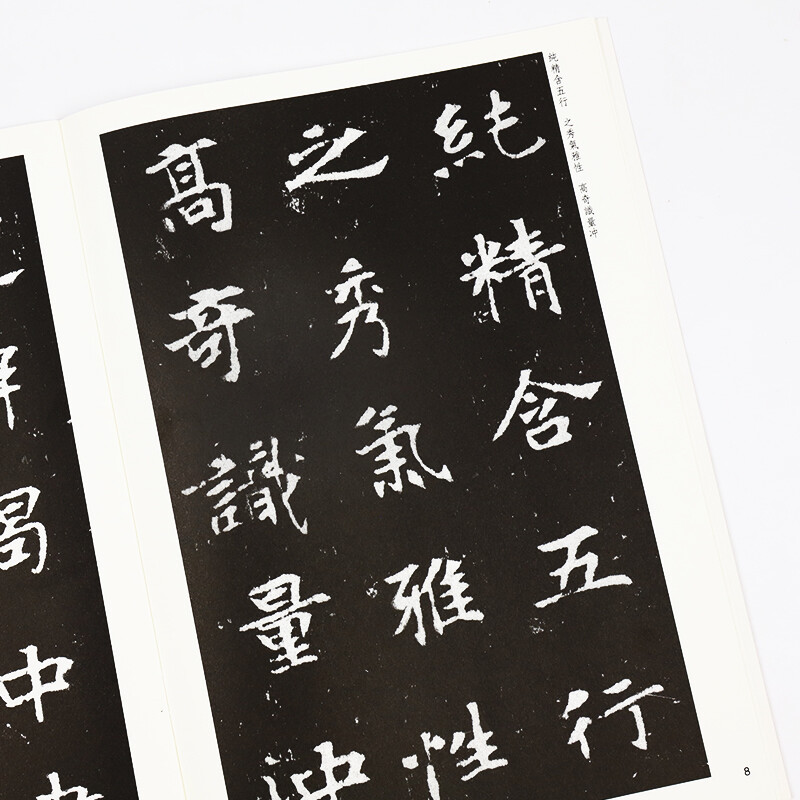 純精含五行　之秀氣雅性　高奇識量冲
純精含五行
之秀氣雅性
髙奇識量冲
中
8